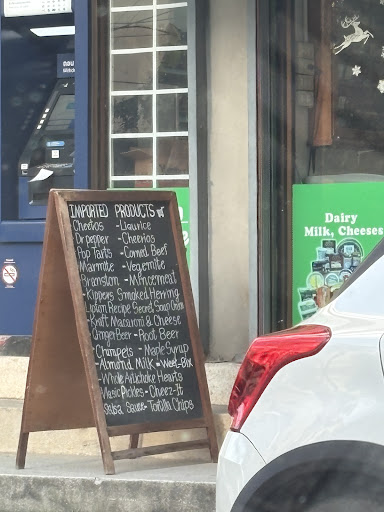 IMPORTED PRODUCTS
Cheetos - Liqurice
Dr pepper - Cheerios
Pop Tarts - Corned Beef
Marmite - Vegemite
Branston - Mincemeat
Kippers Smoked Herring
Lipton Recipe Secret Soup Onion
Kraft Macaroni & Cheese
Ginger Beer - Root Beer
- Crumpets - Maple Syrup
- Almond Milk - Weet-Bix
- Whole Artichoke Hearts
Vlasic Pickles - Cheez-It
Salsa Sauce - Tortilla Chips
Dairy
Milk, Cheeses